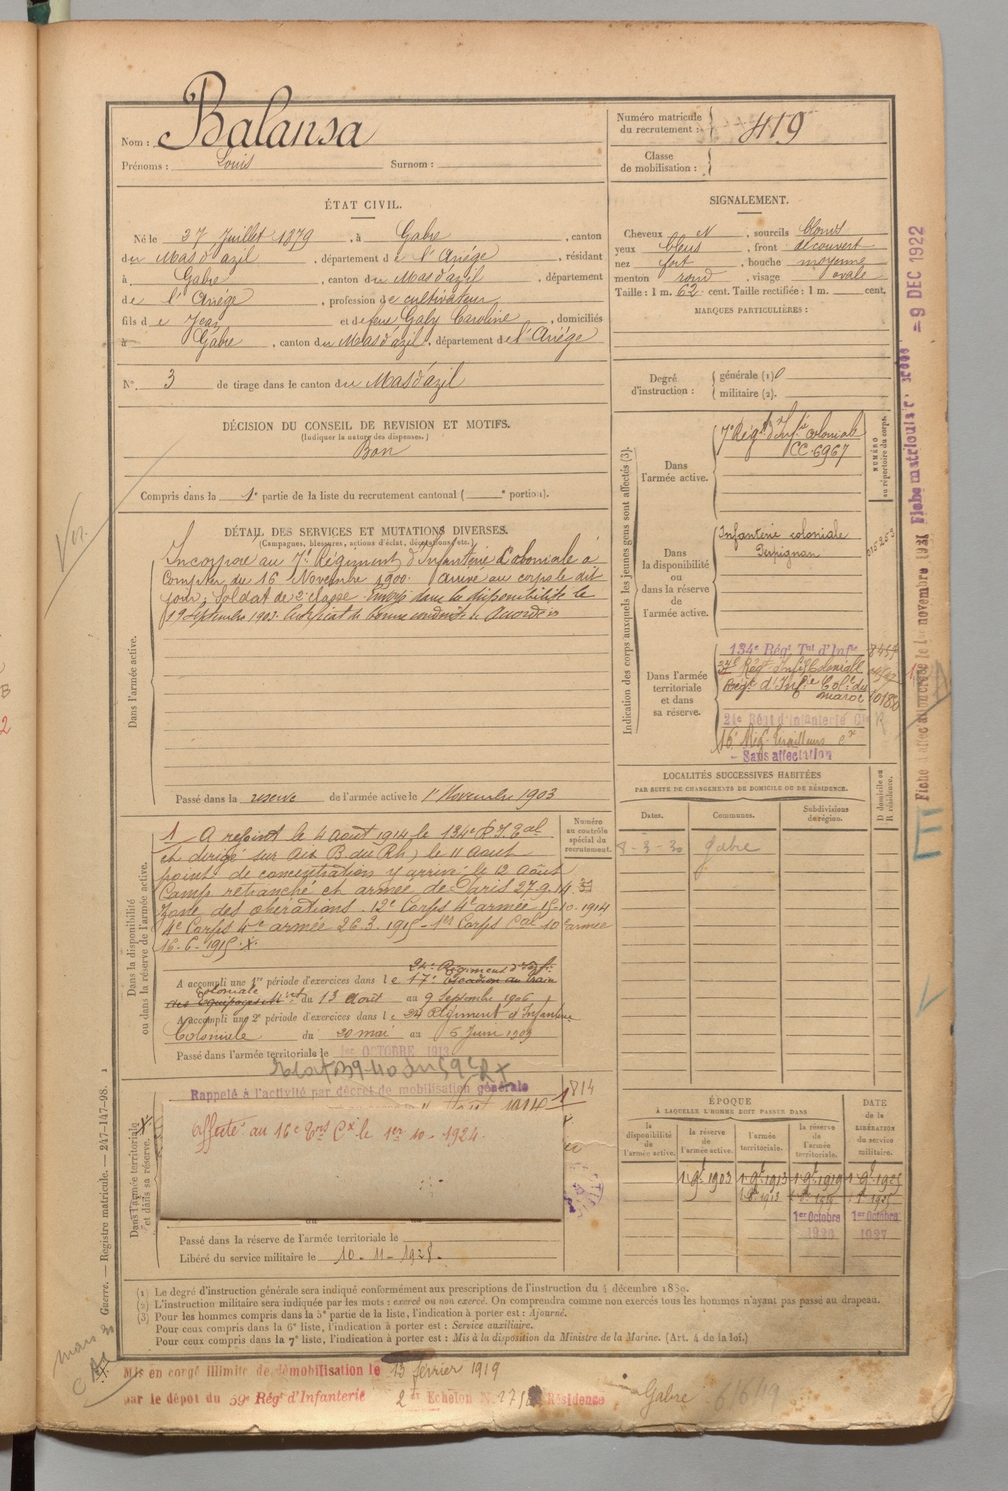 Nom : Balansa
Prénoms : Louis Surnom :
Numéro matricule du recrutement : 419
Classe de mobilisation :
ÉTAT CIVIL.
Né le 27 Juillet 1879, à Gabre, canton
du Mas d'azil, département de l'Ariége, résidant
à Gabre, canton du Mas d'azil, département
de l'Ariége, profession de cultivateur,
fils de Jean et de feue Galy Caroline, domiciliés
à Gabre, canton du Mas d'azil, département de l'Ariége
N° 3 de tirage dans le canton du Mas d'azil
SIGNALEMENT.
Cheveux N, sourcils blonds
yeux bleus, front découvert
nez fort, bouche moyenne
menton rond, visage ovale
Taille : 1 m. 62 cent. Taille rectifiée : 1 m. cent.
MARQUES PARTICULIÈRES :
Degré d'instruction : générale (1) 0
militaire (2).
DÉCISION DU CONSEIL DE REVISION ET MOTIFS.
(Indiquer la nature des dispenses.)
Bon
Compris dans la 1e partie de la liste du recrutement cantonal ( e portion).
DÉTAIL DES SERVICES ET MUTATIONS DIVERSES.
(Campagnes, blessures, actions d'éclat, décorations, etc.)
Dans l'armée active.
Incorporé au 7e Régiment d'Infanterie Coloniale à
compter du 16 Novembre 1900. Arrivé au corps le dit
jour, Soldat de 2e classe. Envoyé dans la disponibilité le
19 Septembre 1903. Certificat de bonne conduite "Accordé"
Passé dans la réserve de l'armée active le 1er Novembre 1903
Indication des corps auxquels les jeunes gens sont affectés (3).
NUMÉRO au répertoire du corps.
Dans l'armée active.
7e Régt d'Infie coloniale
CC. 6967
Dans la disponibilité ou dans la réserve de l'armée active.
Infanterie coloniale
Perpignan
Dans l'armée territoriale et dans sa réserve.
134e Régt Tal d'Infie
Régt d'Infie Coloniale
Régt d'Infie Colle du
maroc 10180
21e Régt d'infanterie Cle
16e Régt Tirailleurs
- Sans affectation
Dans la disponibilité ou dans la réserve de l'armée active.
Numéro au contrôle spécial du recrutement.
A rejoint le 4 aout 1914 le 134e R.I. Tal
et dirigé sur Aix B. du Rh) le 11 Aout
point de concentration y arrivé le 12 août
Camp retranché et armée de Paris 27-9-14
Zone des opérations. 12e Corps 4e armée 15-10-1914
4e Corps 4e armée 26.3.1915 - 1er Corps Cal 10e armée
16-6-1915. X.
24e Régiment d'Inf.
A accompli une 1re période d'exercices dans le 17e Escadron du train
Coloniale
des Equipages Mres du 13 Aout au 9 Septembre 1906
A accompli une 2e période d'exercices dans le 24 Régiment d'Infanterie
Coloniale du 20 mai au 5 Juin 1909
Passé dans l'armée territoriale le 1er OCTOBRE 1913
Rappelé à l'activité par décret de mobilisation générale
1814
Dans l'armée territoriale et dans sa réserve.
affecté au 16e Tirs Cx le 1er 10 - 1924.
Passé dans la réserve de l'armée territoriale le
Libéré du service militaire le 10 - 11 - 1928.
LOCALITÉS SUCCESSIVES HABITÉES
PAR SUITE DE CHANGEMENTS DE DOMICILE OU DE RÉSIDENCE.
D domicile ou R résidence.
Dates. Communes. Subdivisions de région.
8-3-30 Gabre
ÉPOQUE
À LAQUELLE L'HOMME DOIT PASSER DANS
DATE de la LIBÉRATION du service militaire.
la disponibilité de l'armée active. la réserve de l'armée active. l'armée territoriale. la réserve de l'armée territoriale.
1903 1913 1919 1925
1er Octobre 1er Octobre
1927
(1) Le degré d'instruction générale sera indiqué conformément aux prescriptions de l'instruction du 4 décembre 1889.
(2) L'instruction militaire sera indiquée par les mots : exercé ou non exercé. On comprendra comme non exercés tous les hommes n'ayant pas passé au drapeau.
(3) Pour les hommes compris dans la 5e partie de la liste, l'indication à porter est : Ajourné.
Pour ceux compris dans la 6e liste, l'indication à porter est : Service auxiliaire.
Pour ceux compris dans la 7e liste, l'indication à porter est : Mis à la disposition du Ministre de la Marine. (Art. 4 de la loi.)
Mis en congé illimité de démobilisation le 13 février 1919
par le dépot du 59e Régt d'Infanterie 2e Echelon Résidence Gabre 61649
Guerre. — Registre matricule. — 247-147-98.
Fiche matricule
= 9 DEC 1922